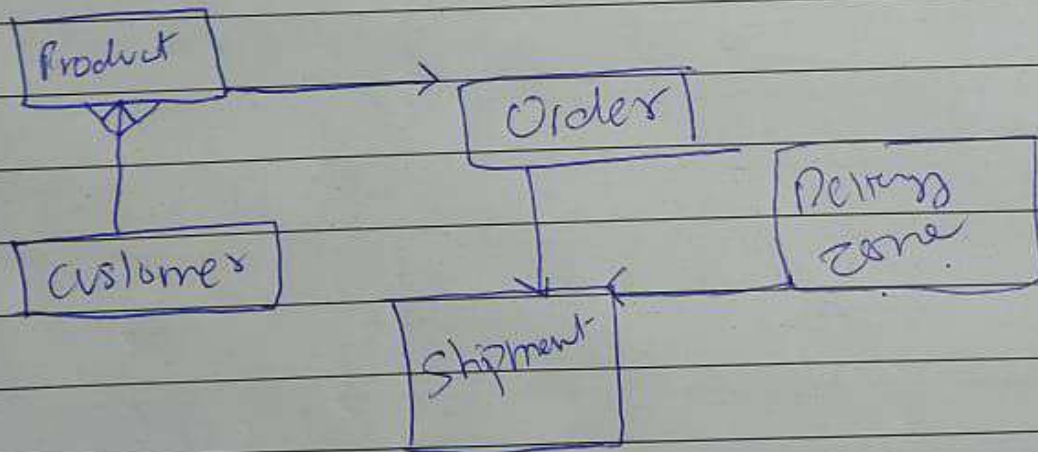 Product
Order
Delivery
zone
customer
Shipment